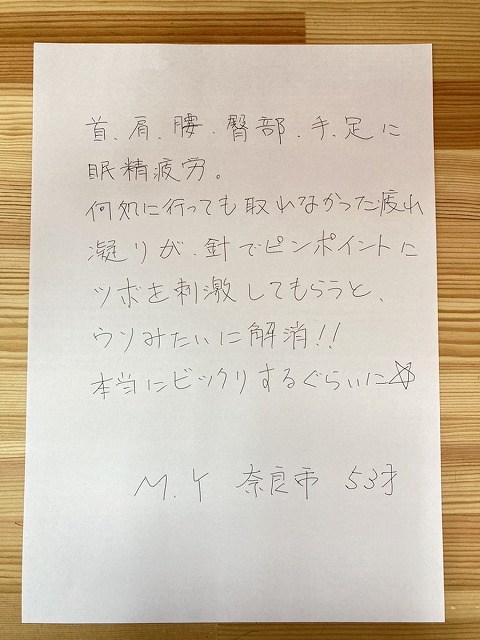 首、肩、腰、臀部、手、足に
眼精疲労。
何処に行っても取れなかった疲れ
凝りが、針でピンポイントに
ツボを刺激してもらうと、
ウソみたいに解消!!
本当にビックリするぐらいに☆
M.Y 奈良市 53才